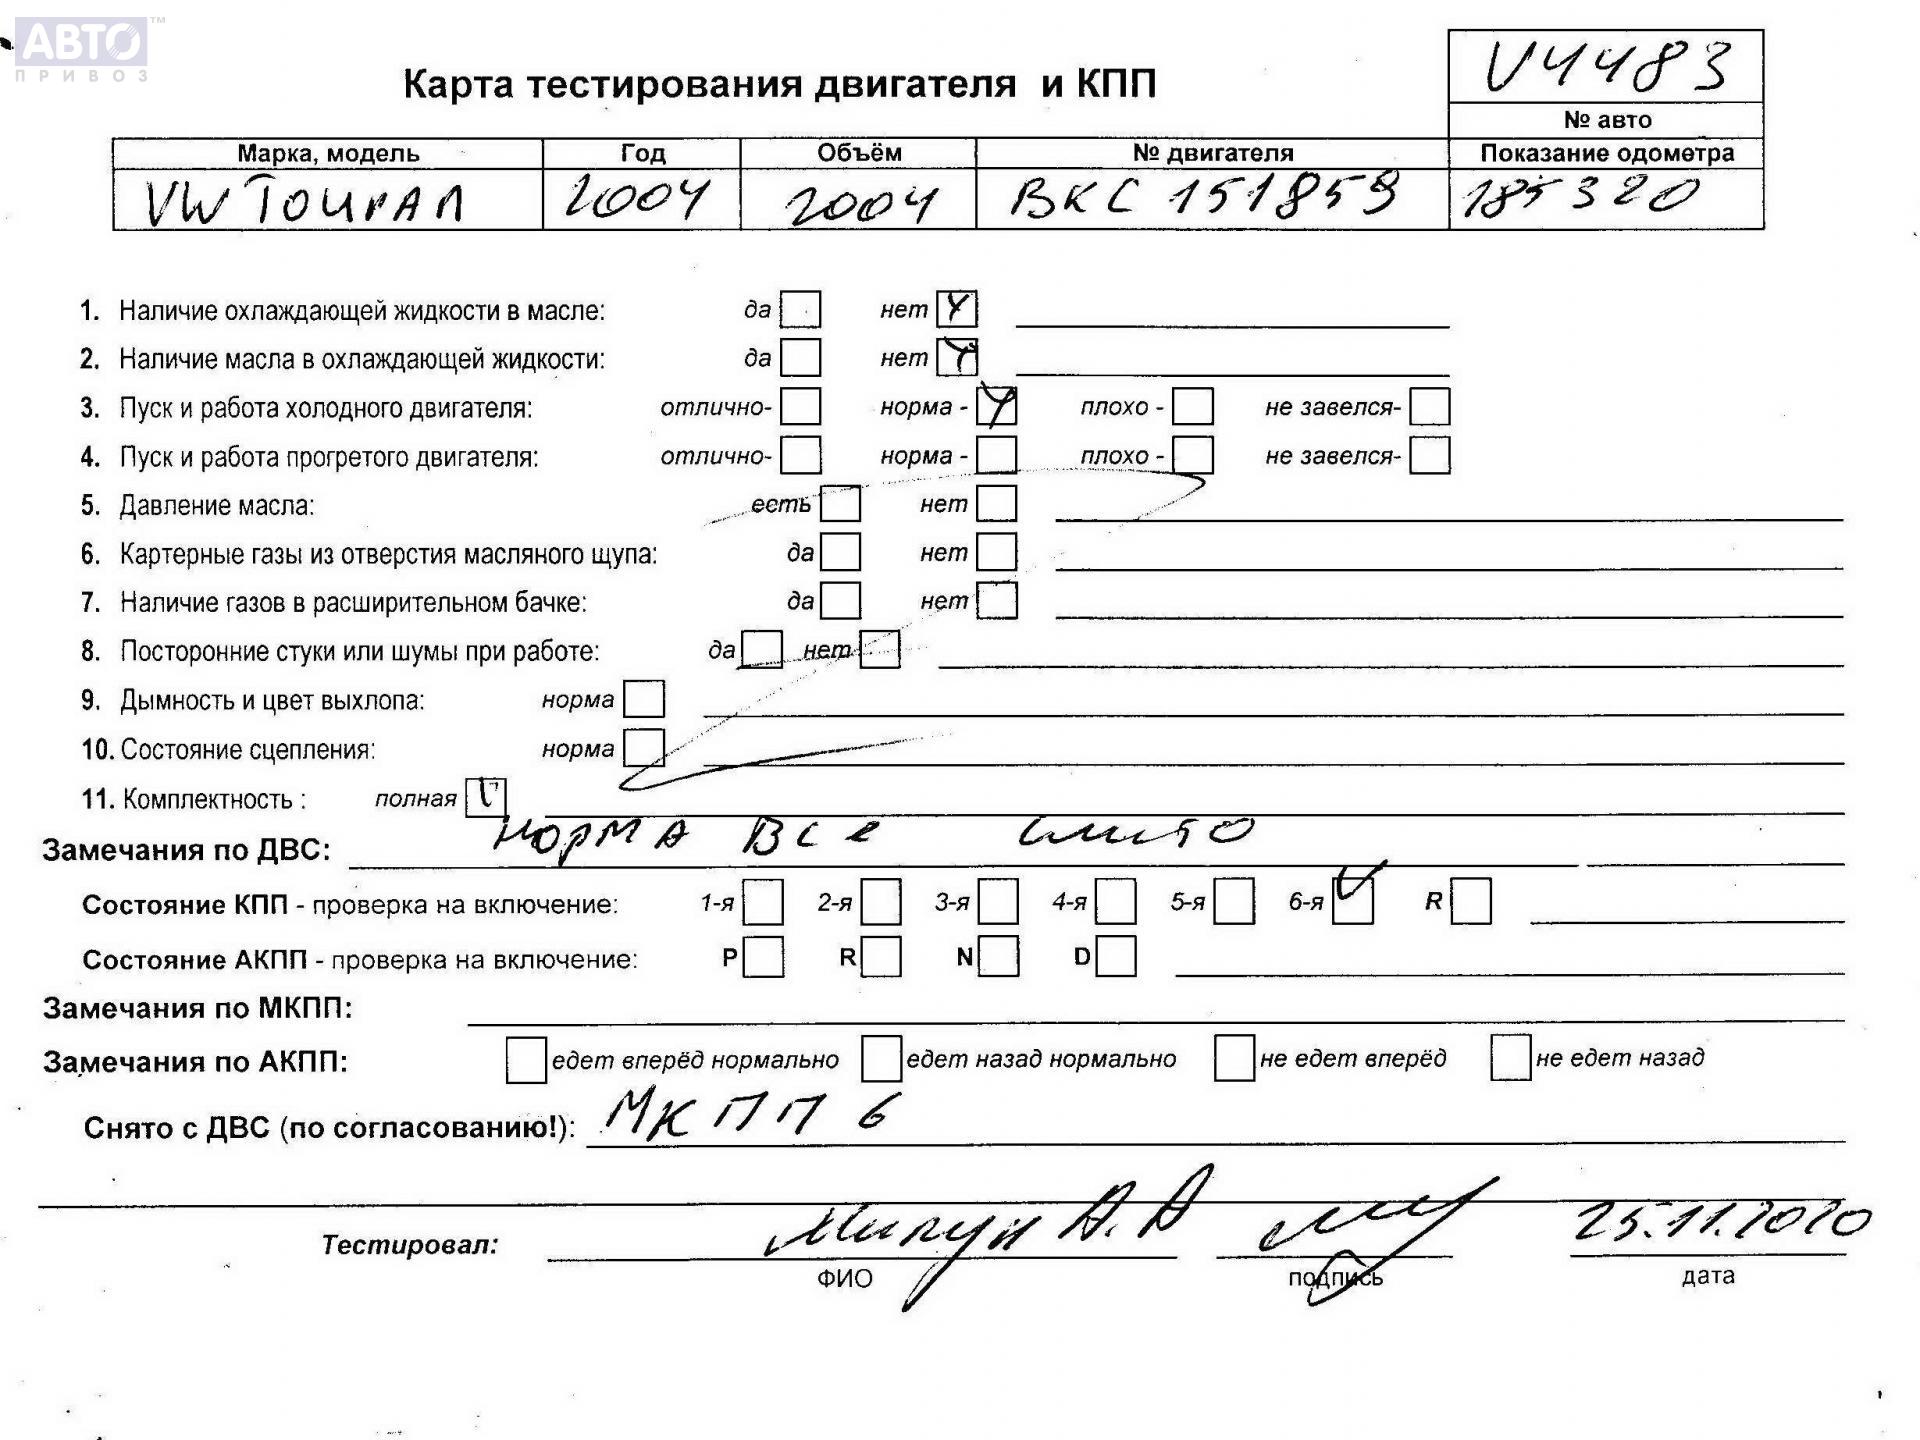 АВТО™
ПРИВОЗ
V4483
Карта тестирования двигателя и КПП
№ авто
Марка, модель Год Объём № двигателя Показание одометра
VW Touran 2004 2004 BKC 151859 185320
1. Наличие охлаждающей жидкости в масле: да нет
2. Наличие масла в охлаждающей жидкости: да нет
3. Пуск и работа холодного двигателя: отлично- норма - плохо - не завелся-
4. Пуск и работа прогретого двигателя: отлично- норма - плохо - не завелся-
5. Давление масла: есть нет
6. Картерные газы из отверстия масляного щупа: да нет
7. Наличие газов в расширительном бачке: да нет
8. Посторонние стуки или шумы при работе: да нет
9. Дымность и цвет выхлопа: норма
10. Состояние сцепления: норма
11. Комплектность : полная
Замечания по ДВС: норма все
Состояние КПП - проверка на включение: 1-я 2-я 3-я 4-я 5-я 6-я R
Состояние АКПП - проверка на включение: P R N D
Замечания по МКПП:
Замечания по АКПП: едет вперёд нормально едет назад нормально не едет вперёд не едет назад
Снято с ДВС (по согласованию!): МКПП 6
Тестировал: А.А 25.11.2020
ФИО подпись дата